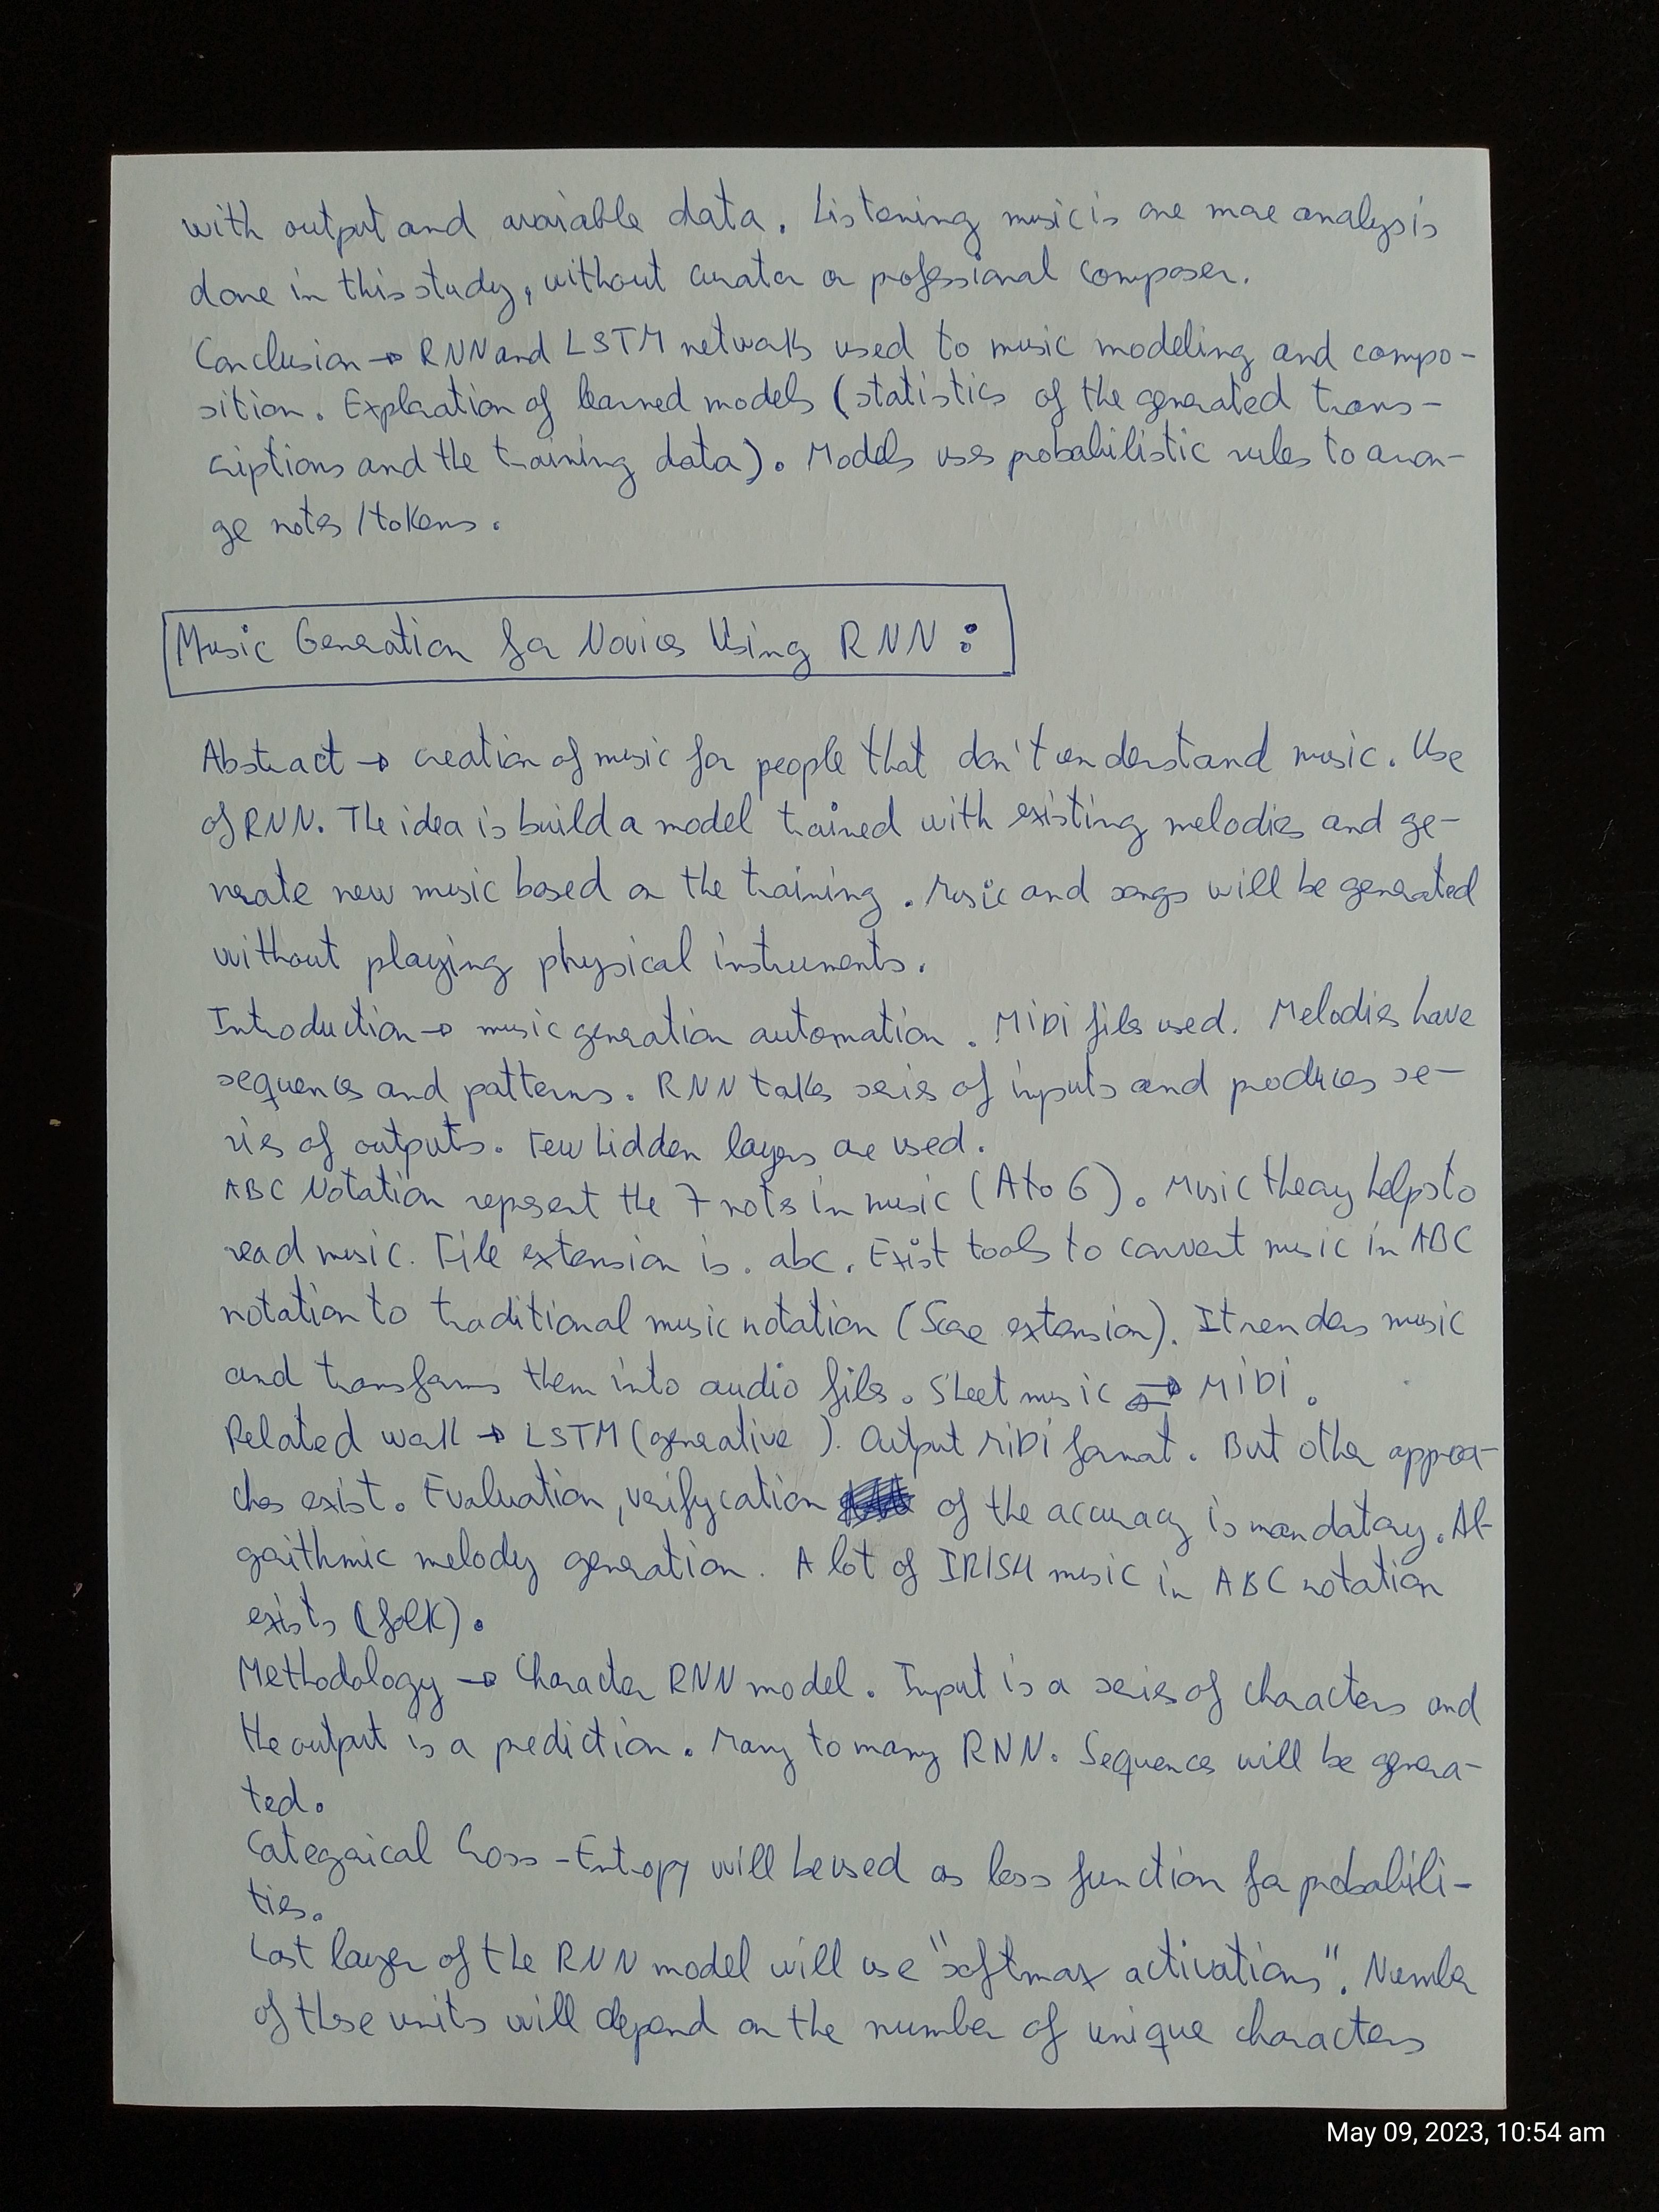 with output and avaiable data. Listening music is one more analysis
done in this study, without curator or professional composer.
Conclusion → RNN and LSTM networks used to music modeling and compo-
sition. Exploration of learned models (statistics of the generated trans-
criptions and the training data). Models uses probabilistic rules to arran-
ge notes / tokens.
Music Generation for Novices Using RNN:
Abstract → creation of music for people that don't understand music. Use
of RNN. The idea is build a model trained with existing melodies and ge-
nerate new music based on the training. Music and songs will be generated
without playing physical instruments.
Introduction → music generation automation. MiDi files used. Melodies have
sequences and patterns. RNN takes series of inputs and produces se-
ries of outputs. Few hidden layers are used.
ABC Notation represent the 7 notes in music (A to G). Music theory helps to
read music. File extension is .abc. Exist tools to convert music in ABC
notation to traditional music notation (Score extension). It renders music
and transforms them into audio files. Sheet music ⇄ MiDi.
Related work → LSTM (generative ). Output MiDi format. But other approa-
ches exist. Evaluation, verifycation of the accuracy is mandatory. Al-
gorithmic melody generation. A lot of IRISH music in ABC notation
exists (folk).
Methodology → Character RNN model. Input is a series of characters and
the output is a prediction. Many to many RNN. Sequences will be genera-
ted.
Categorical Cross-Entropy will be used as loss function for probabili-
ties.
Last layer of the RNN model will use "softmax activations". Number
of these units will depend on the number of unique characters
May 09, 2023, 10:54 am